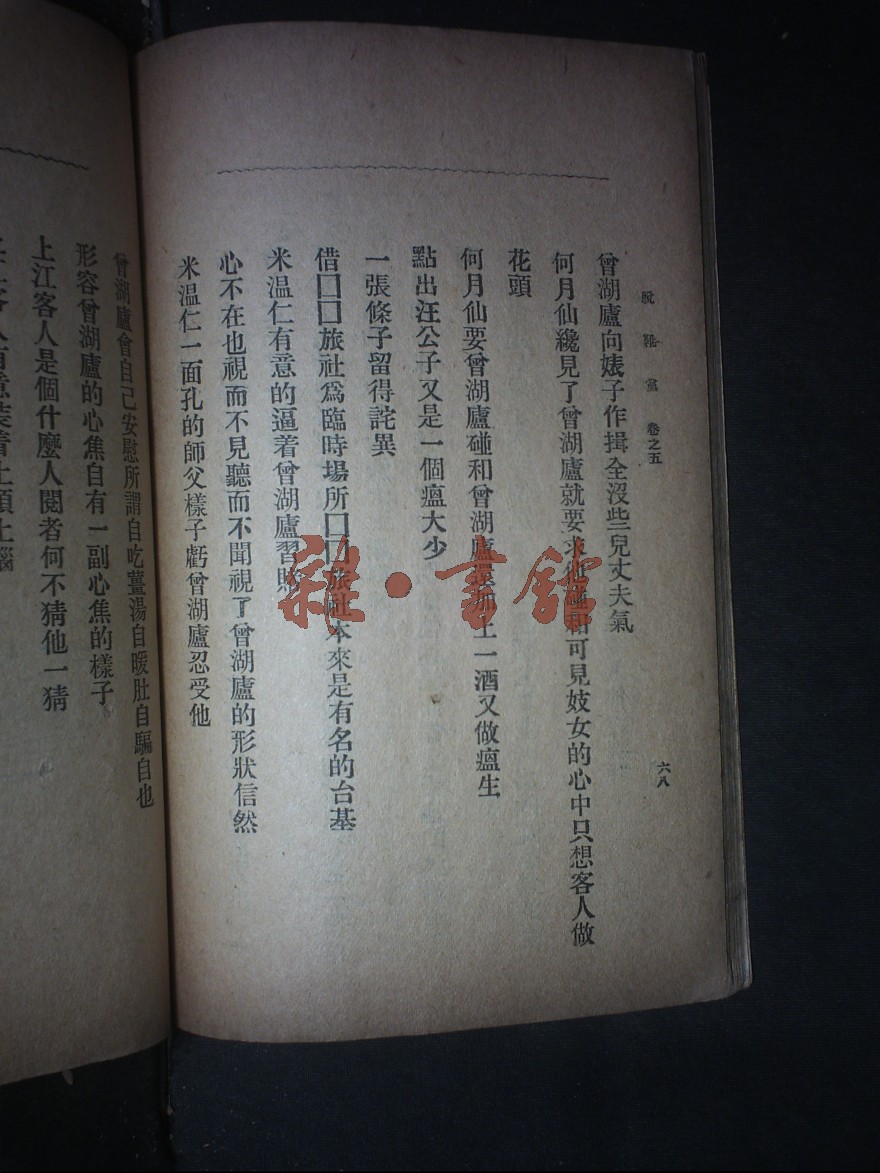 脫鞋黨 卷之五
六八
曾湖廬向婊子作揖全沒些兒丈夫氣
何月仙纔見了曾湖廬就要求他碰和可見妓女的心中只想客人做
花頭
何月仙要曾湖廬碰和曾湖廬還加上一酒又做瘟生
點出汪公子又是一個瘟大少
一張條子留得詫異
借囗囗旅社爲臨時場所囗囗旅社本來是有名的台基
米温仁有意的逼着曾湖廬習賭
心不在也視而不見聽而不聞視了曾湖廬的形狀信然
米温仁一面孔的師父樣子虧曾湖廬忍受他
曾湖廬會自己安慰所謂自吃薑湯自暖肚自騙自也
形容曾湖廬的心焦自有一副心焦的樣子
上江客人是個什麼人閱者何不猜他一猜
客人有意裝着土頭土腦
雜·書館